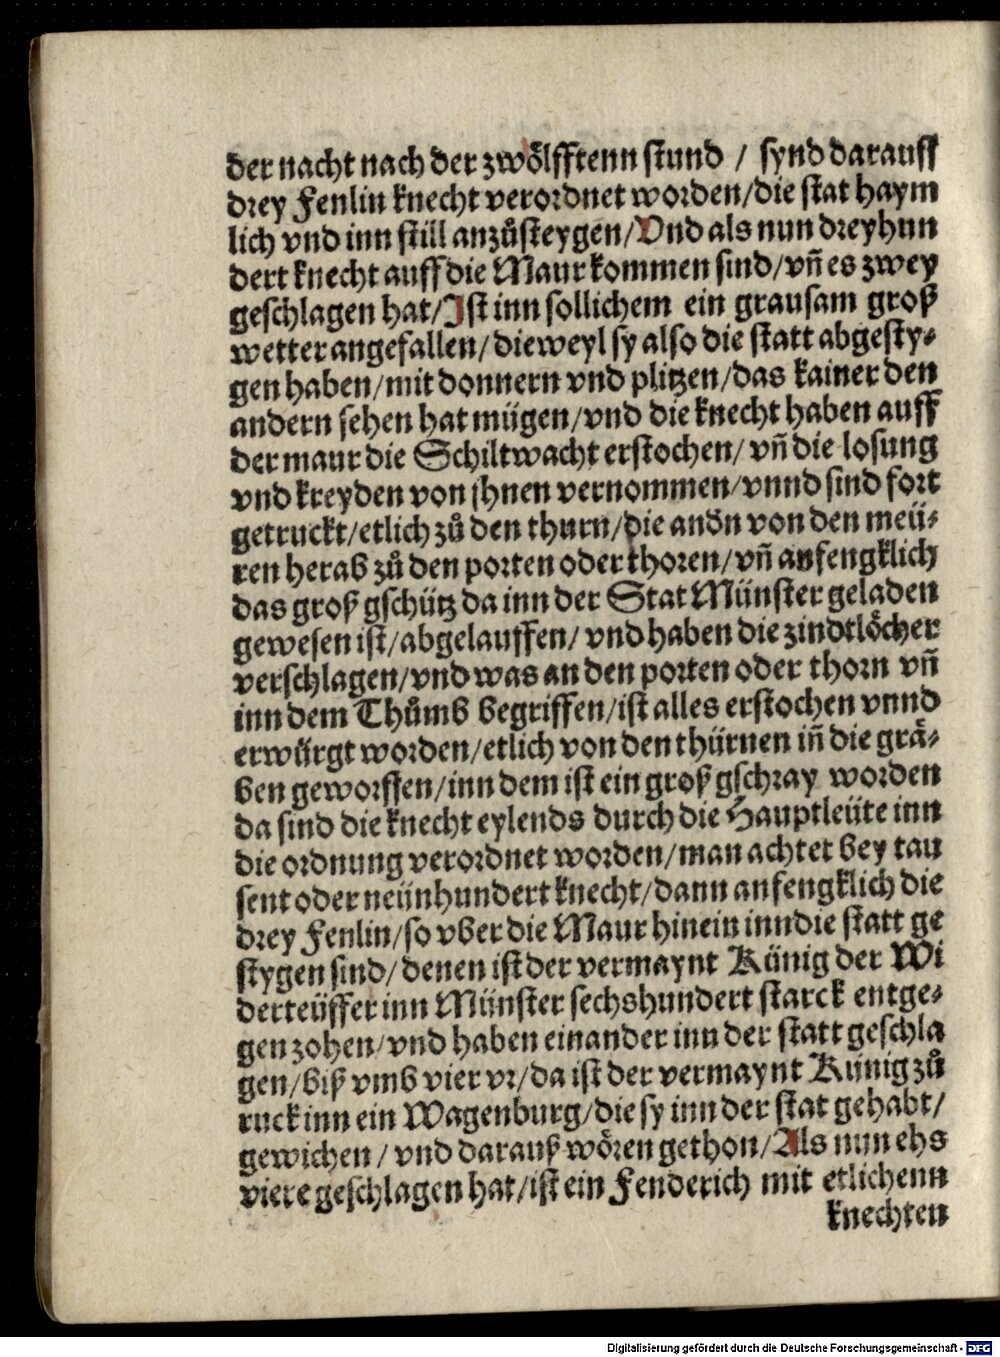 der nacht nach der zwoͤlfftenn stund / synd darauff
drey Fenlin knecht verordnet worden/die stat haym
lich vnd inn still anzuͦsteygen/Vnd als nun dreyhun
dert knecht auff die Maur kommen sind/vñ es zwey
geschlagen hat/Ist inn sollichem ein grausam groß
wetter angefallen/dieweyl sy also die statt abgesty⸗
gen haben/mit donnern vnd plitzen/das kainer den
andern sehen hat mügen/vnd die knecht haben auff
der maur die Schiltwacht erstochen/ vñ die losung
vnd kreyden von jhnen vernommen/vnnd sind fort
getruckt/etlich zuͦ den thurn/die andn von den meü⸗
ren herab zuͦ den porten oder thoren/vñ anfengklich
das groß gschütz da inn der Stat Münster geladen
gewesen ist/abgelauffen/ vnd haben die zindtloͤcher
verschlagen/vnd was an den porten oder thorn vñ
inn dem Thuͦmb begriffen/ist alles erstochen vnnd
erwürgt worden/etlich von den thürnen iñ die graͤ⸗
ben geworffen/inn dem ist ein groß gschray worden
da sind die knecht eylends durch die Hauptleüte inn
die ordnung verordnet worden/man achtet bey tau
sent oder neünhundert knecht/dann anfengklich die
drey Fenlin/so vber die Maur hinein inn die statt ge
stygen sind/denen ist der vermaynt Künig der Wi
derteüffer inn Münster sechshundert starck entge⸗
gen zohen/vnd haben einander inn der statt geschla
gen/biß vmb vier vr/da ist der vermaynt Künig zuͦ
ruck inn ein Wagenburg/die sy inn der stat gehabt/
gewichen / vnd darauß woͤren gethon/Als nun ehs
viere geschlagen hat/ist ein Fenderich mit etlichenn
knechten
Digitalisierung gefördert durch die Deutsche Forschungsgemeinschaft - DFG